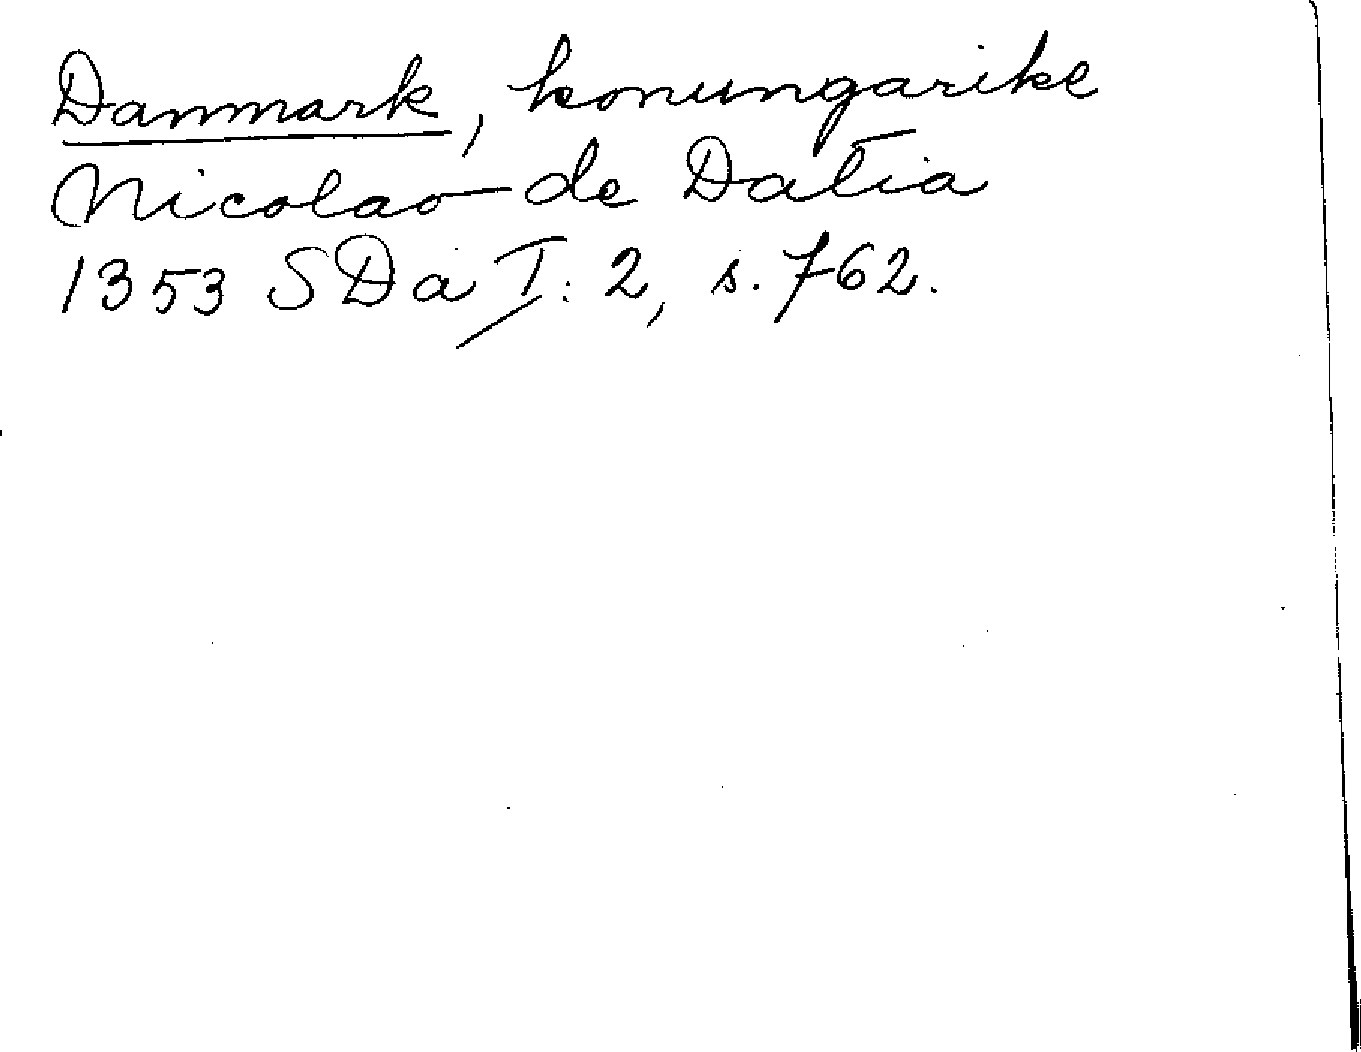 Danmark, konungarike
Nicolao de Datia
1353 SDä I: 2, s. 762.